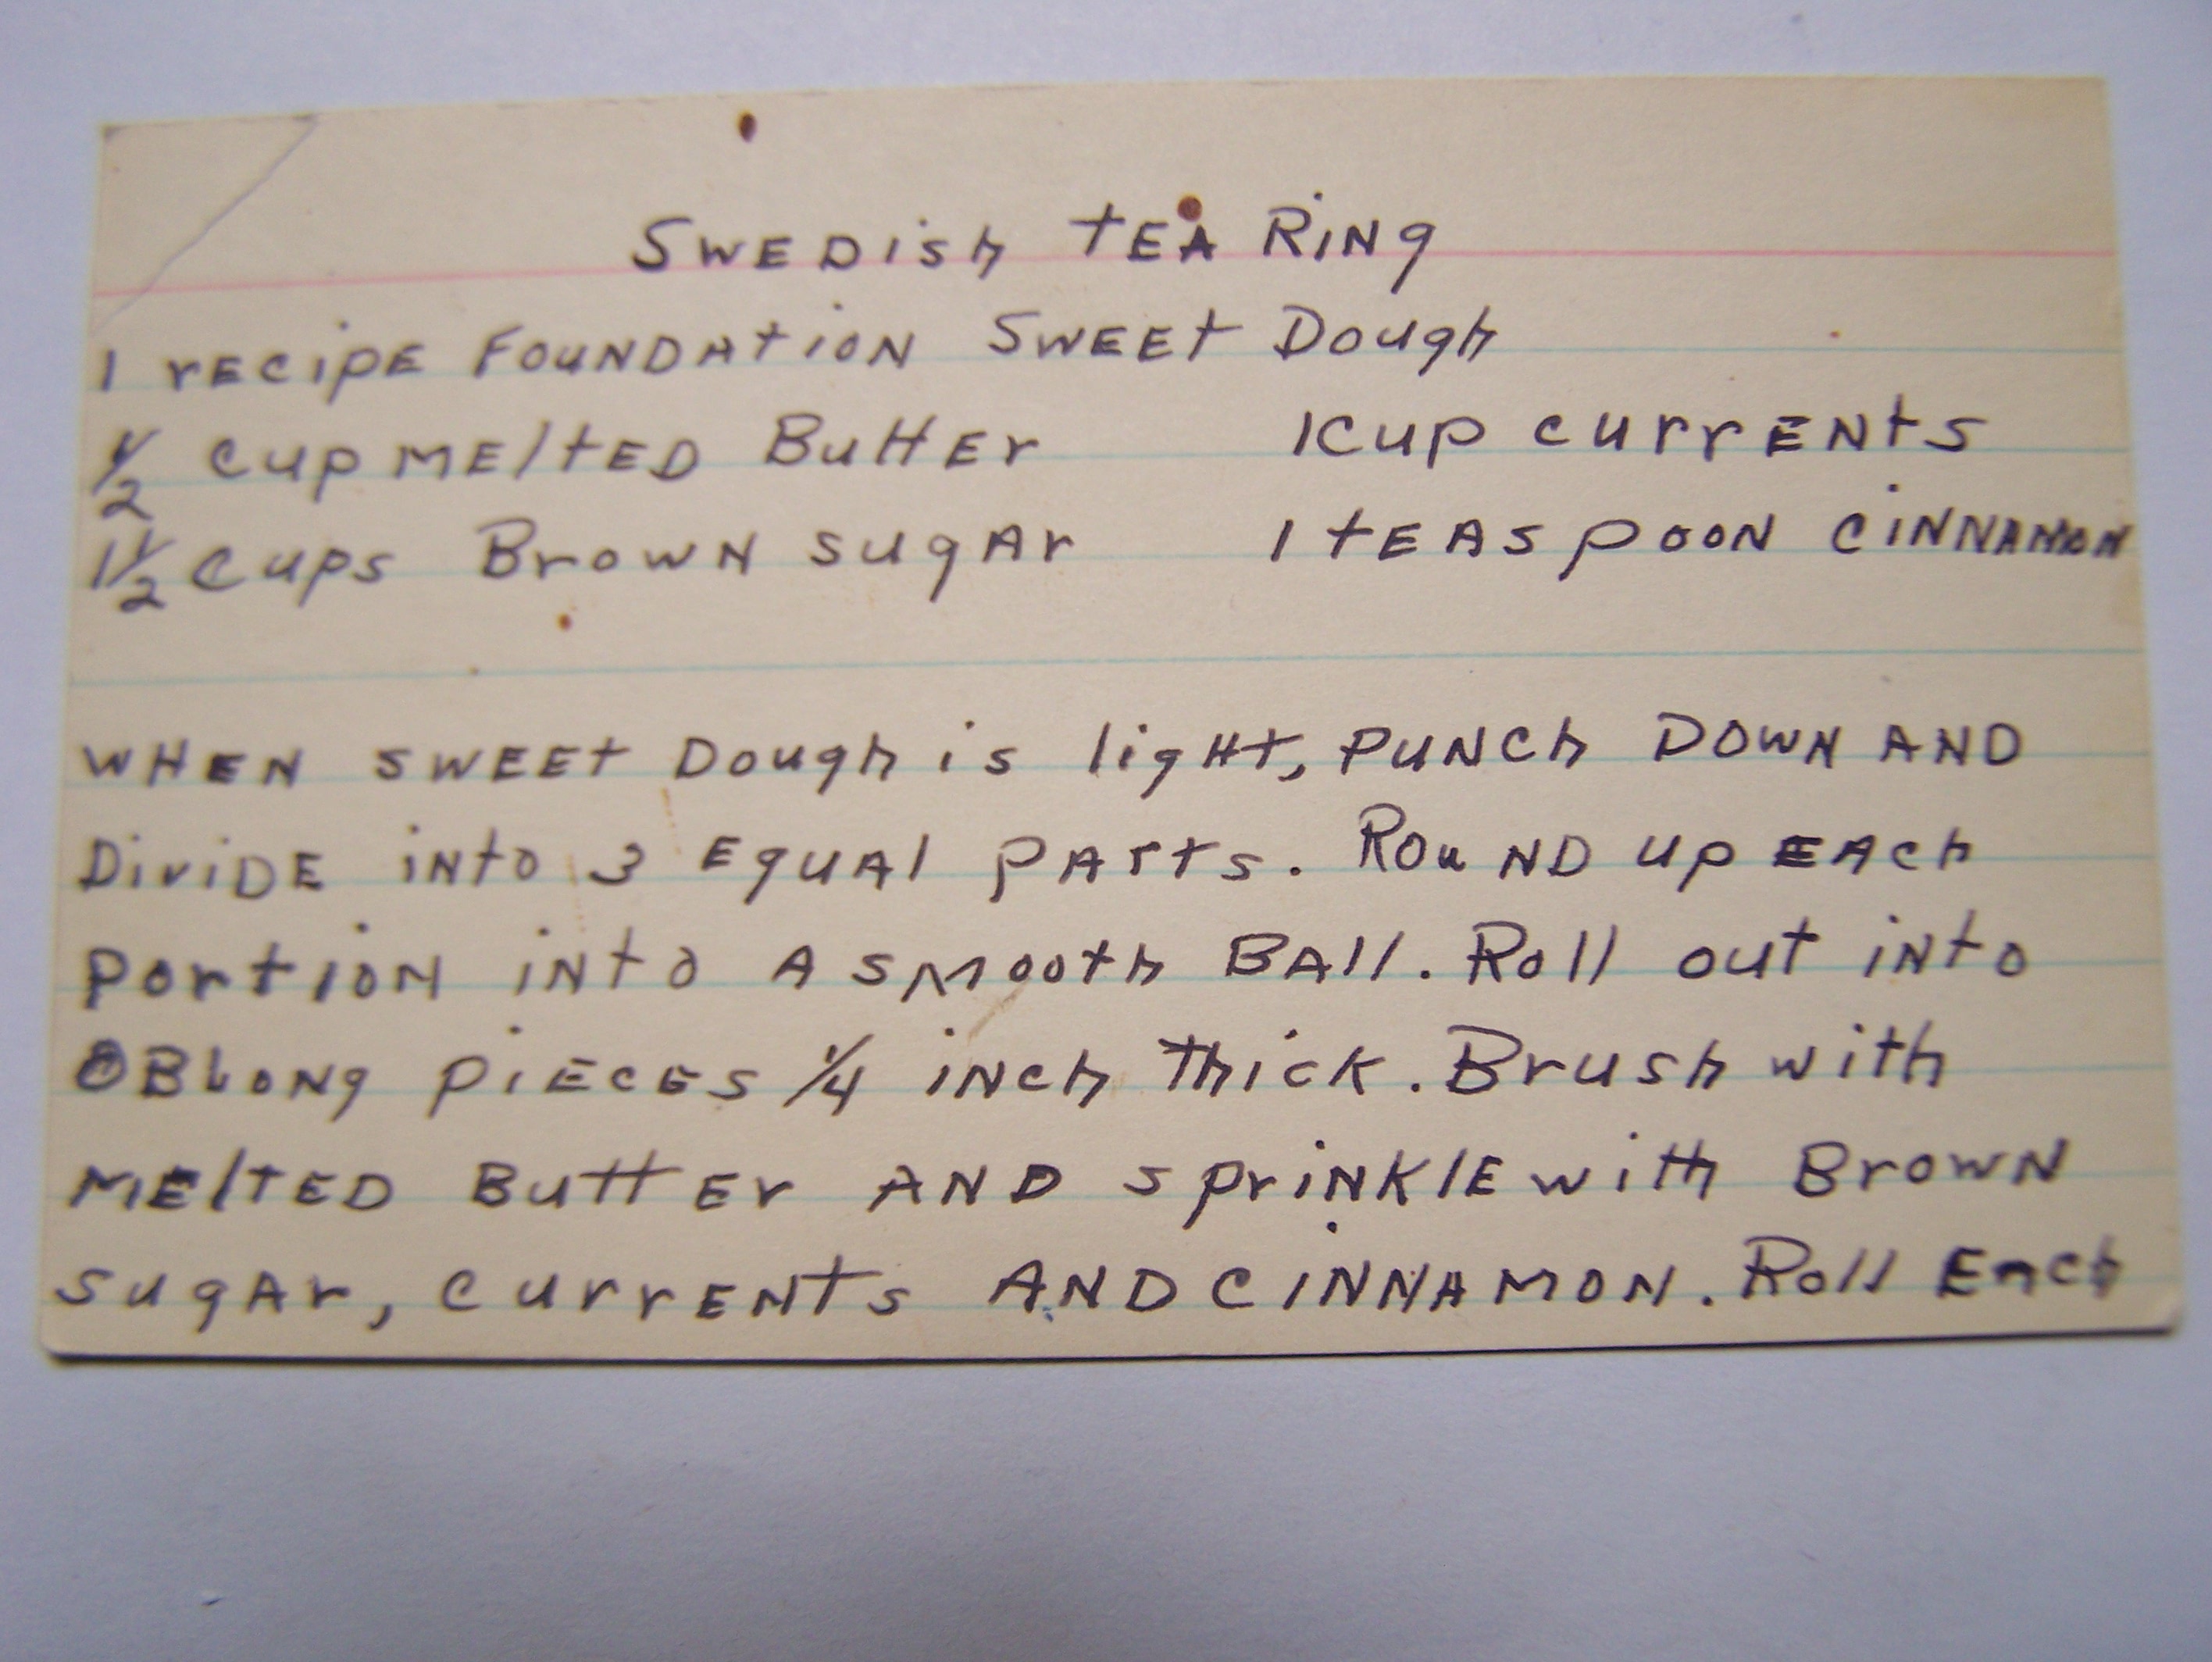 Swedish Tea Ring
1 recipe Foundation Sweet Dough
1/2 cup melted Butter 1 cup currents
1 1/2 cups Brown sugar 1 teaspoon cinnamon
When sweet Dough is light, punch down and
Divide into 3 equal parts. Round up each
portion into a smooth Ball. Roll out into
oblong pieces 1/4 inch thick. Brush with
melted Butter and sprinkle with Brown
sugar, currents and cinnamon. Roll Each